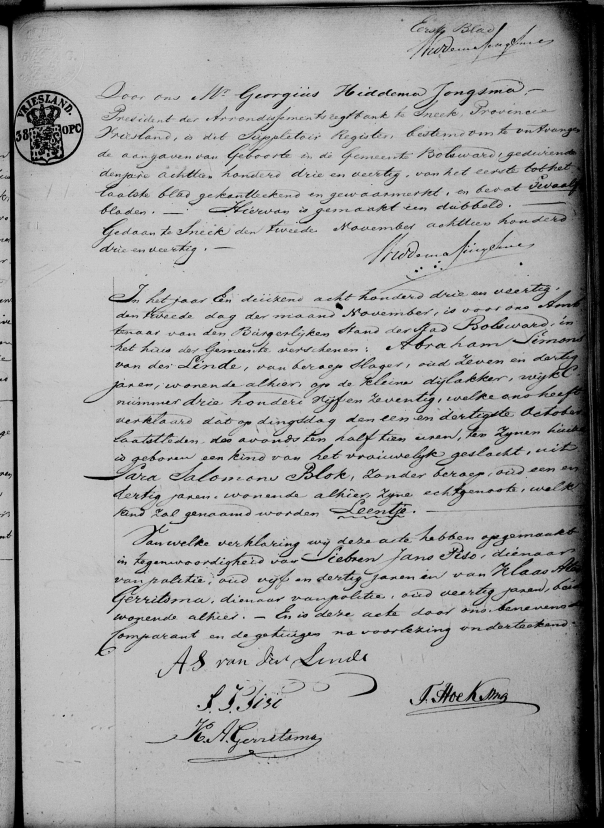 Eerste Blad
Hiddema Jongsma
VRIESLAND.
38 OPC
Door ons Mr. Georgius Hiddema Jongsma.—
President der Arrondissements regtbank te Sneek, Provincie
Vriesland, is dit Suppletoir Register, bestemd om te ontvangen
de aangaven van Geboorte in de Gemeente Bolsward, gedurende
den jare achttien honderd drie en veertig, van het eerste tot het
laatste blad gekantteekend en gewaarmerkt, en bevat twaalf
bladen.— Hiervan is gemaakt een dubbeld.
Gedaan te Sneek den tweede November achttien honderd
drie en veertig.—
Hiddema Jongsma
In het jaar Een duizend acht honderd drie en veertig,
den tweede dag der maand November, is voor ons Amb
tenaar van den Burgerlijken Stand der Stad Bolsward, in
het huis der Gemeente verschenen: Abraham Simons
van der Linde, van beroep Slager, oud zeven en dertig
jaren, wonende alhier, op de Kleine dijlakker, wijk C
nummer drie honderd vijf en zeventig, welke ons heeft
verklaard dat op dingsdag den een en dertigste October
laatstleden des avonds ten half tien uren, ten zynen huize
is geboren een kind van het vrouwelijk geslacht, uit
Sara Salomons Blok, zonder beroep, oud een en
dertig jaren, wonende alhier, zyne echtgenoote, welk
kind zal genaamd worden Leentje.—
Van welke verklaring wij deze acte hebben opgemaakt
in tegenwoordigheid van Siebren Jans Piso, dienaar
van politie, oud vijf en dertig jaren en van Klaas
Gerritsma, dienaar van politie, oud veertig jaren, beide
wonende alhier.— En is deze acte door ons benevens de
Comparant en de getuigen na voorlezing onderteekend.
A S. van der Linde
S. J. Piso
F. Hoeksma
K. A. Gerritsma